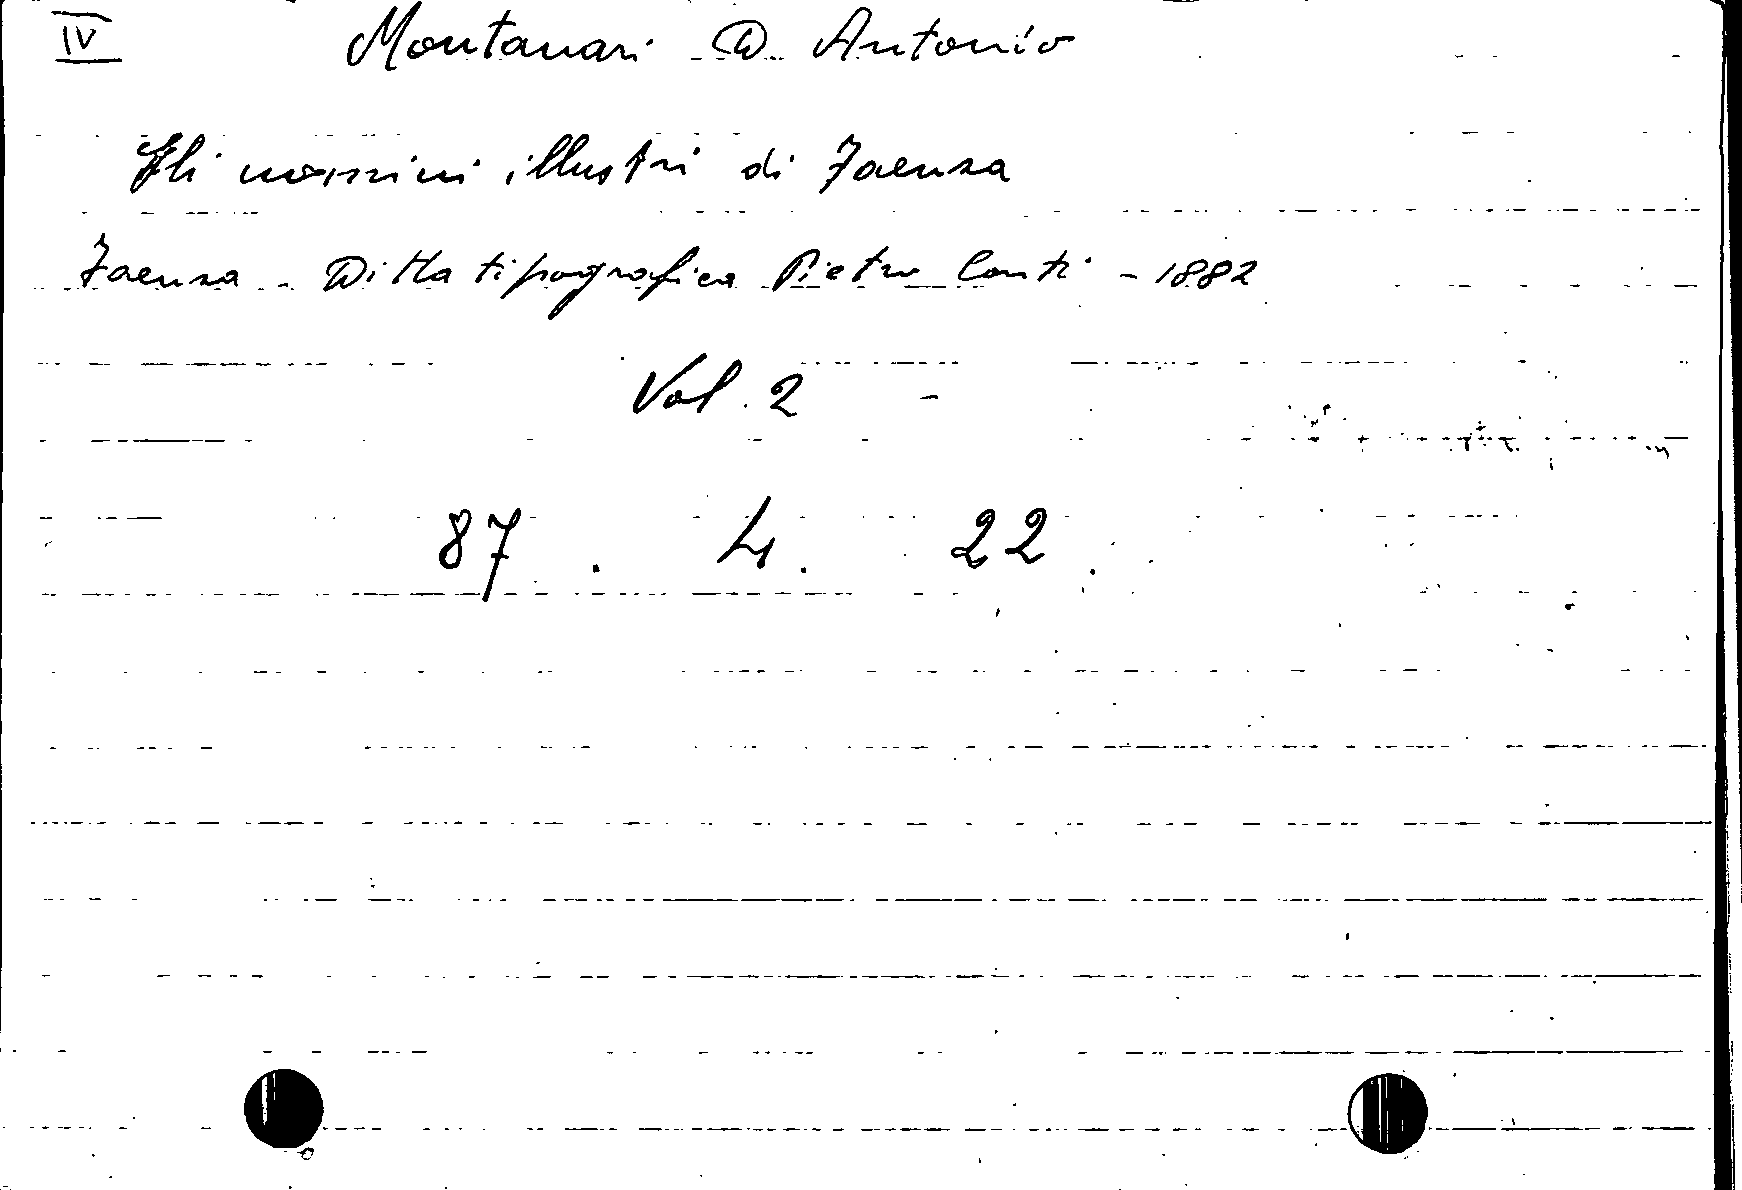 IV Montanari D. Antonio
Gli uomini illustri di Faenza
Faenza - Ditta tipografica Pietro Conti - 1882
Vol. 2 -
87 . 4 . 22 .